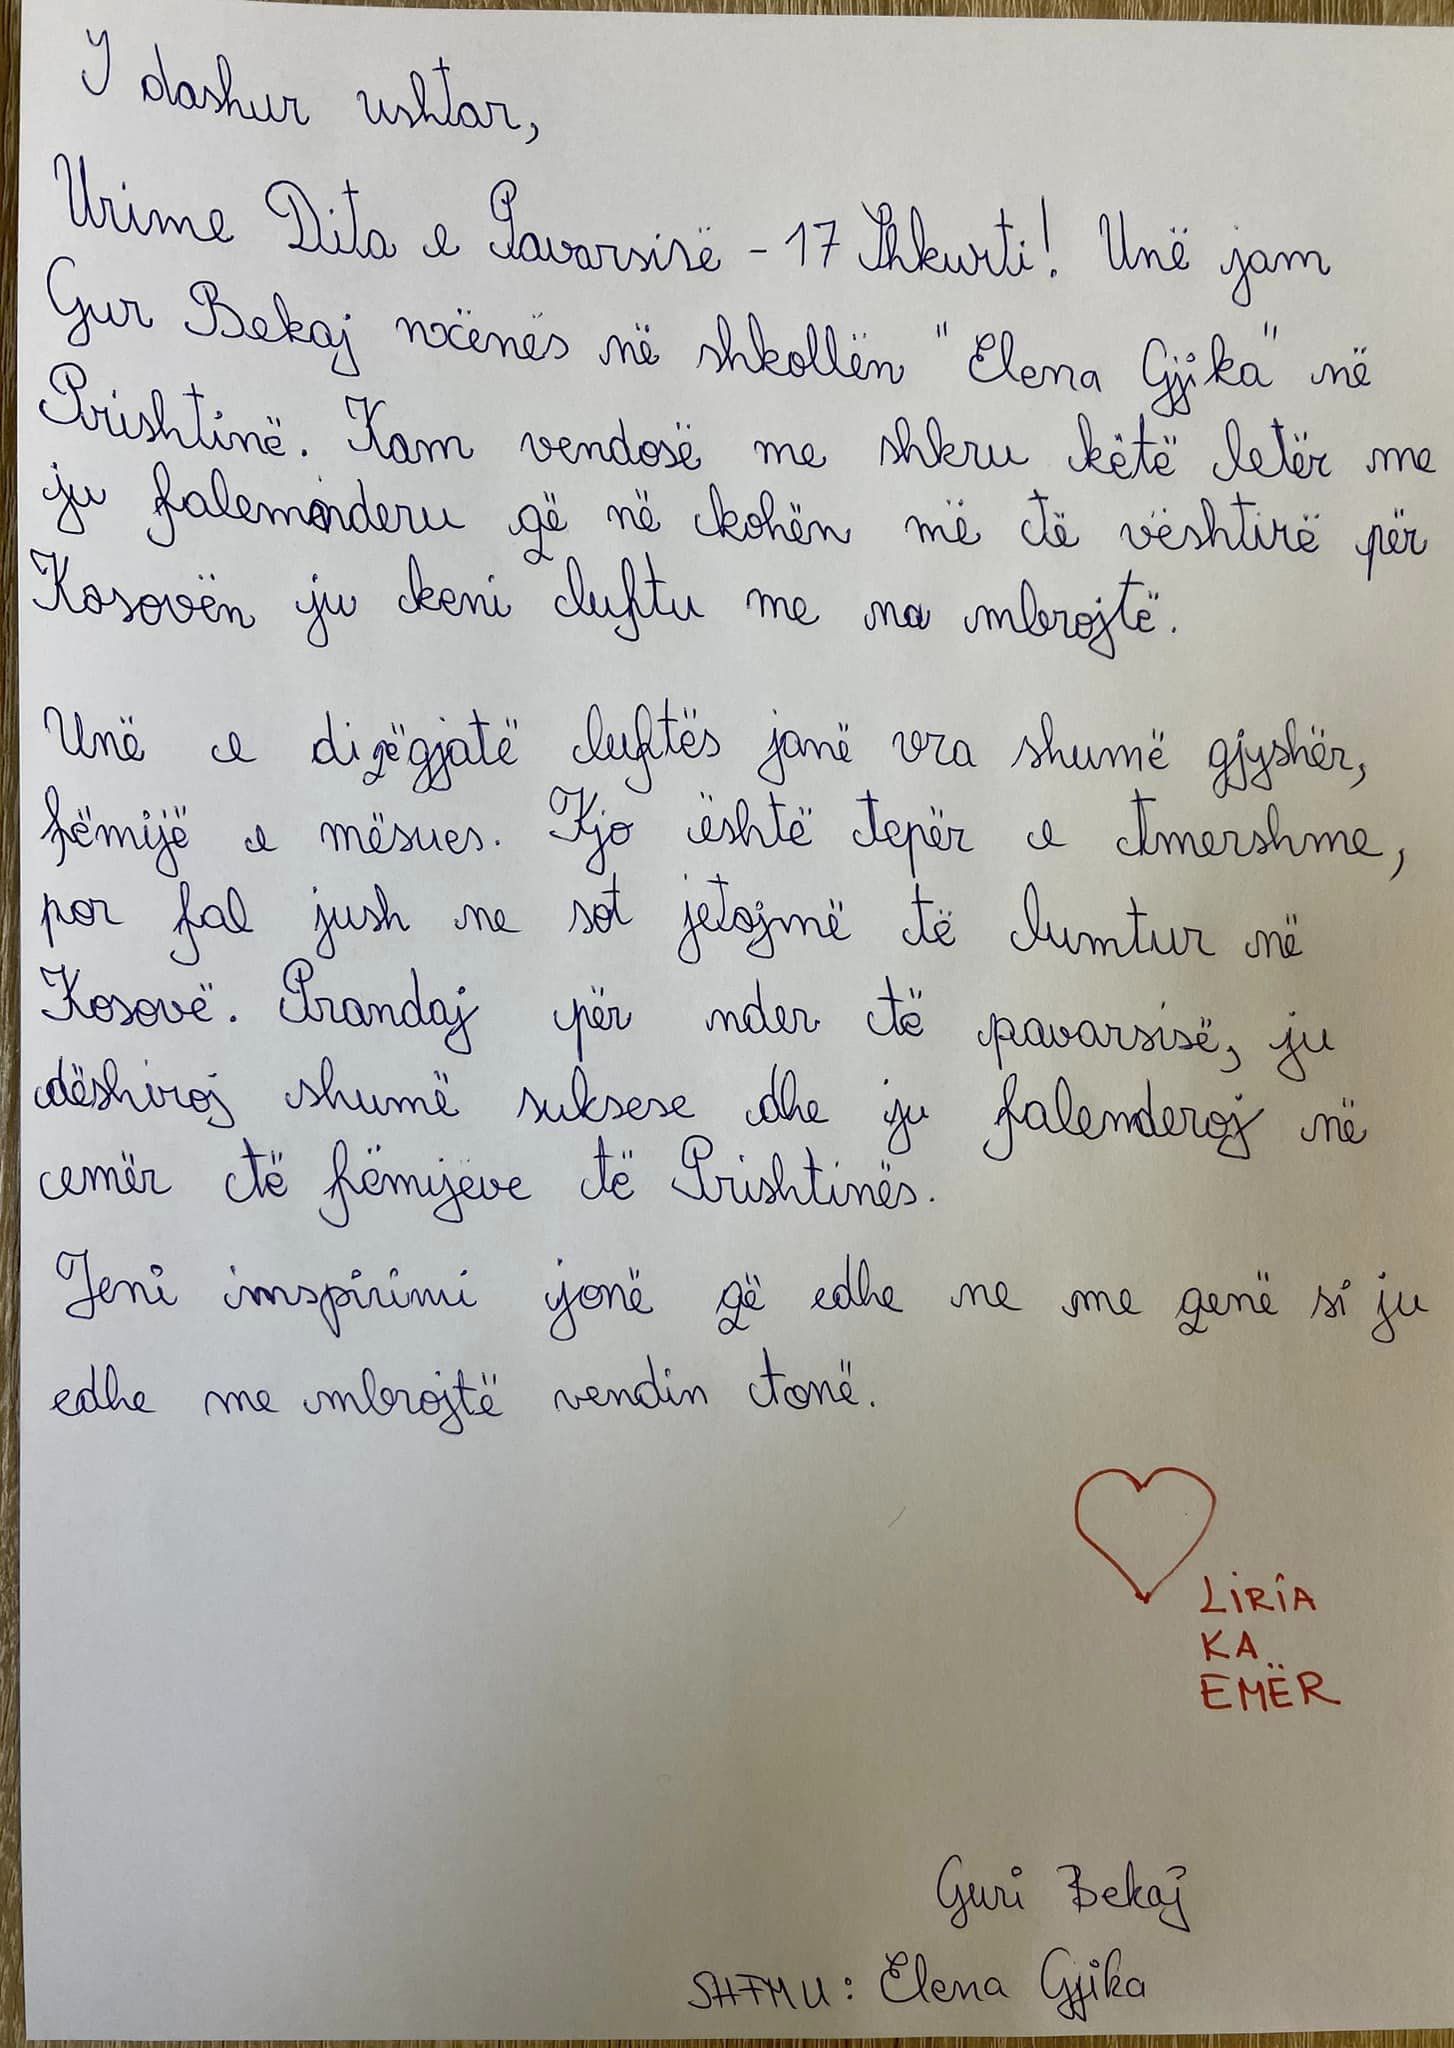 I dashur ushtar,
Urime Dita e Pavarsisë - 17 Shkurti! Unë jam
Gur Bekaj nxënës në shkollën "Elena Gjika" në
Prishtinë. Kam vendosë me shkru këtë letër me
ju falemënderu që në kohën më të vështirë për
Kosovën ju keni luftu me na mbrojtë.
Unë e di gjatë luftës janë vra shumë gjyshër,
fëmijë e mësues. Kjo është tepër e tmershme,
por fal jush ne sot jetojmë të lumtur në
Kosovë. Prandaj për nder të pavarsisë, ju
dëshiroj shumë suksese dhe ju falenderoj në
emër të fëmijëve të Prishtinës.
Jeni inspirimi jonë që edhe ne me qenë si ju
edhe me mbrojtë vendin tonë.
LIRIA
KA
EMËR
Guri Bekaj
SHFMU: Elena Gjika